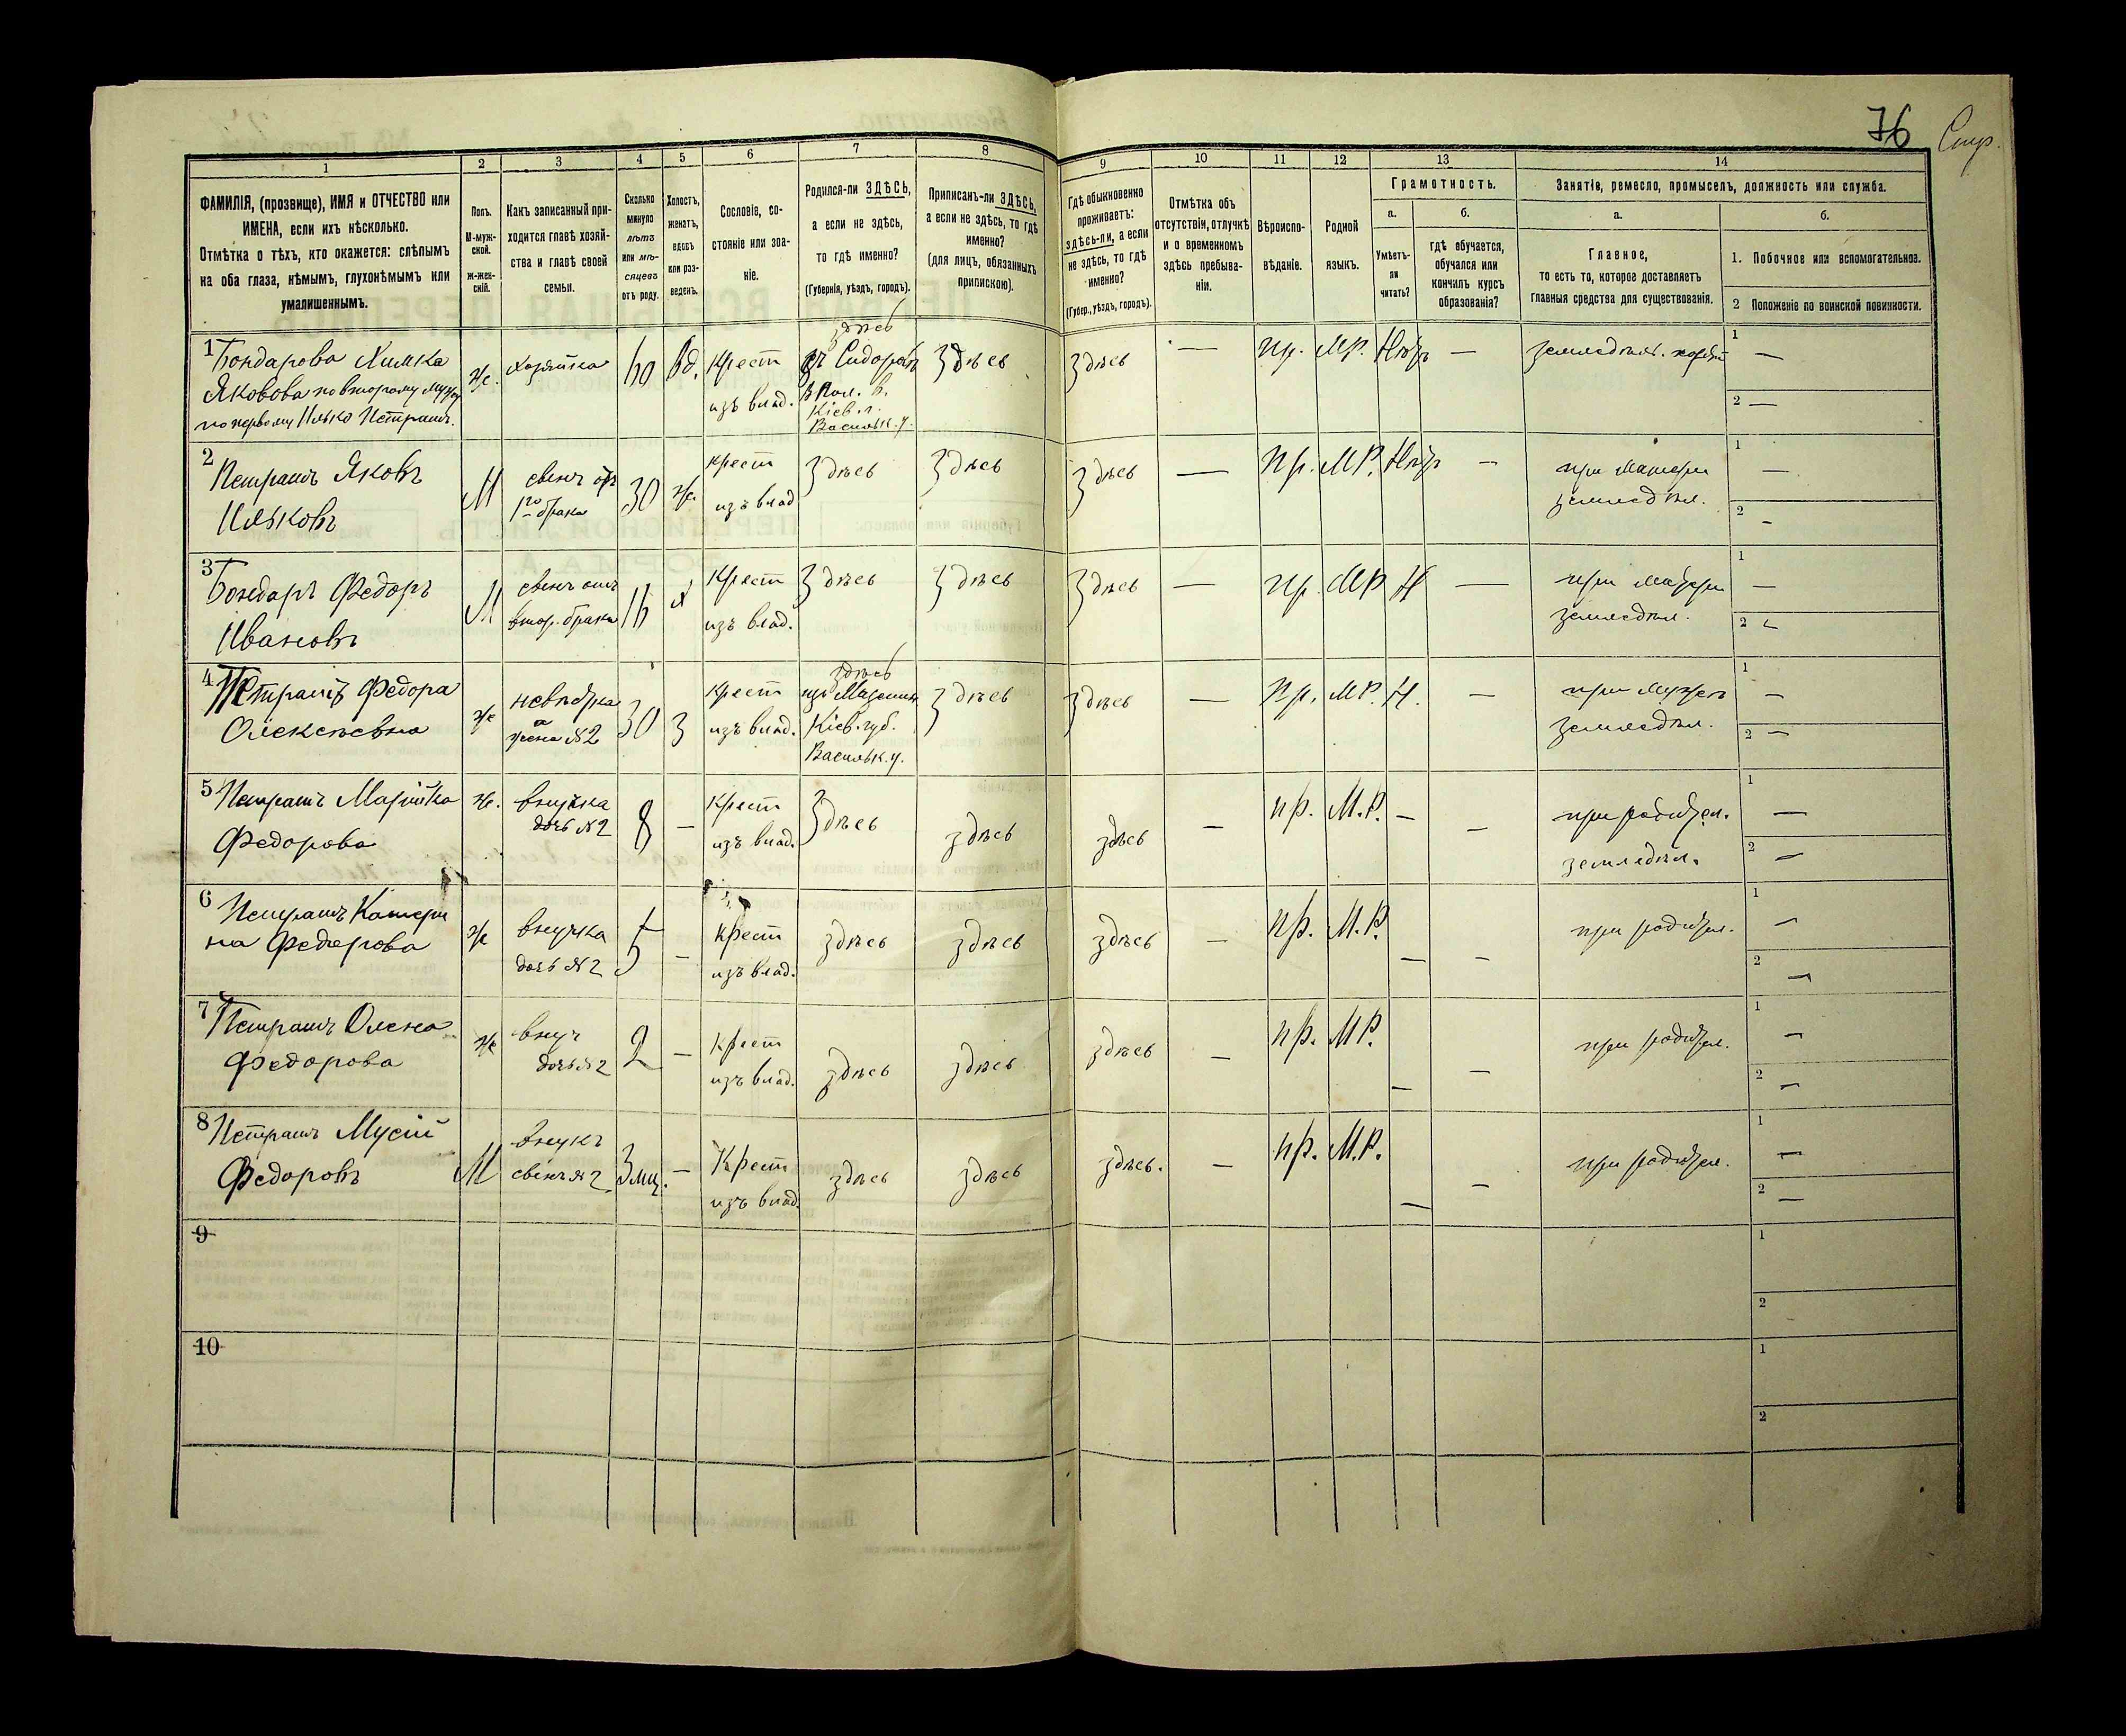 76 Стр.
1 2 3 4 5 6 7 8 9 10 11 12 13 14
ФАМИЛІЯ, (прозвище), ИМЯ и ОТЧЕСТВО или
ИМЕНА, если ихъ нѣсколько.
Отмѣтка о тѣхъ, кто окажется: слѣпымъ
на оба глаза, нѣмымъ, глухонѣмымъ или
умалишеннымъ.
Полъ.
М-муж-
ской.
Ж-жен-
скій.
Какъ записанный при-
ходится главѣ хозяй-
ства и главѣ своей
семьи.
Сколько
минуло
лѣтъ
или мѣ-
сяцевъ
отъ роду.
Холостъ,
женатъ,
вдовъ
или раз-
веденъ.
Сословіе, со-
стояніе или зва-
ніе.
Родился-ли ЗДѢСЬ,
а если не здѣсь,
то гдѣ именно?
(Губернія, уѣздъ, городъ).
Приписанъ-ли ЗДѢСЬ,
а если не здѣсь, то гдѣ
именно?
(для лицъ, обязанныхъ
припискою).
Гдѣ обыкновенно
проживаетъ:
здѣсь-ли, а если
не здѣсь, то гдѣ
именно?
(Губер., уѣздъ, городъ).
Отмѣтка объ
отсутствіи, отлучкѣ
и о временномъ
здѣсь пребыва-
ніи.
Вѣроиспо-
вѣданіе.
Родной
языкъ.
Грамотность.
а.
Умѣетъ-
ли
читать?
б.
гдѣ обучается,
обучался или
кончилъ курсъ
образованія?
Занятіе, ремесло, промыселъ, должность или служба.
а.
Главное,
то есть то, которое доставляетъ
главныя средства для существованія.
б.
1. Побочное или вспомогательное.
2 Положеніе по воинской повинности.
1 Бондарова Химка
Яковова по второму мужу
по первому Илько Петрашъ.
ж. хозяйка 60 вд. Крест
изъ влад.
здѣсь
Кіев. г.
Васильк. у.
здѣсь здѣсь — пр. МР. Нѣтъ — земледѣл.
1 —
2 —
2 Петрашъ Яковъ
Ильковъ
М свинъ отъ
1го брака
30 ж. крест
изъ влад
здѣсь здѣсь здѣсь — пр. МР. Нѣтъ — при матери
земледѣл.
1 —
2 -
3 Бондаръ Федоръ
Ивановъ
М свинъ отъ
втор. брака
16 х Крест
изъ влад.
здѣсь здѣсь здѣсь — пр. МР Н — при матери
земледѣл.
1 —
2 -
4 Петрашъ Федора
Олексѣевна
ж невѣстка
жена №2
30 З крест
изъ влад.
здѣсь
Кіев. губ.
Васильк. у.
здѣсь здѣсь — пр. МР. Н. — при мужѣ
земледѣл.
1 —
2 —
5 Петрашъ Марійка
Федорова
ж. внучка
дочь №2
8 — Крест
изъ влад.
здѣсь здѣсь здѣсь — пр. М.Р. — — при родител.
земледѣл.
1 —
2 —
6 Петрашъ Катери
на Федорова
ж внучка
дочь №2
5 — крест
изъ влад.
здѣсь здѣсь здѣсь — пр. М.Р. — — при родител.
1 —
2 —
7 Петрашъ Олена
Федорова
ж внуч
дочь №2
2 — Крест
изъ влад.
здѣсь здѣсь здѣсь — пр. МР. — — при родител.
1 —
2 —
8 Петрашъ Мусій
Федоровъ
М внукъ
свинъ №2.
3 мц. — Крест
изъ влад.
здѣсь здѣсь здѣсь. — пр. М.Р. — — при родител.
1 —
2 —
9
1
2
10
1
2